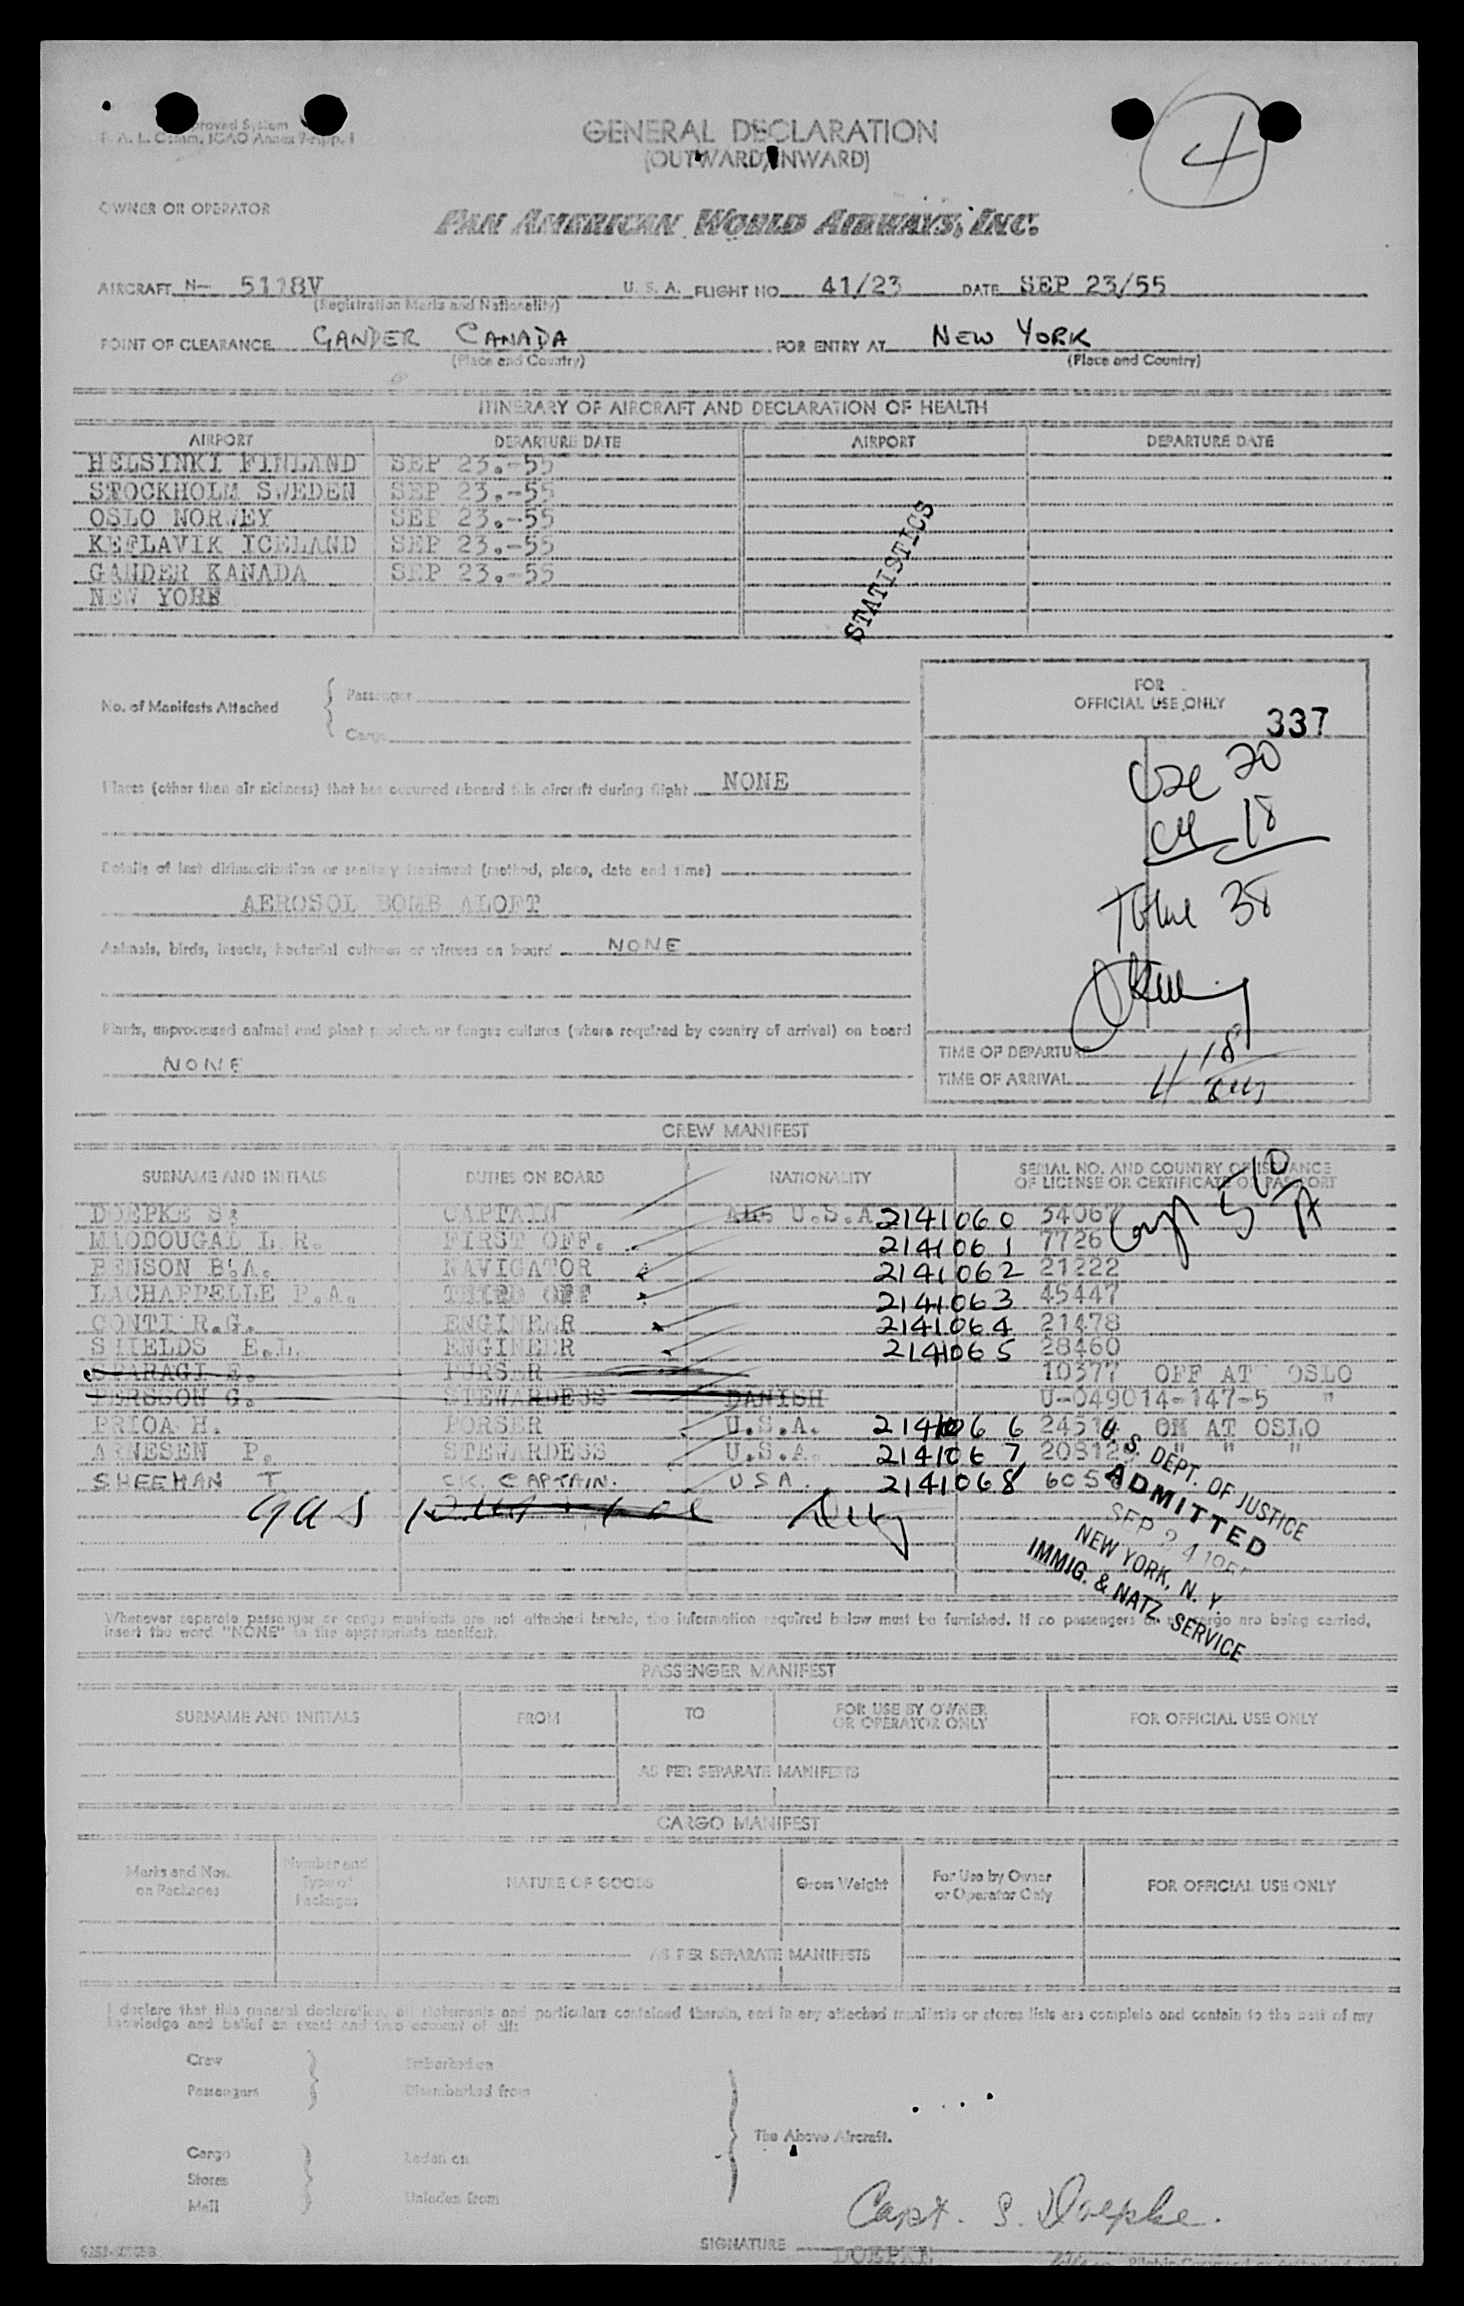 4
GENERAL DECLARATION
(OUTWARD/INWARD)
OWNER OR OPERATOR
PAN AMERICAN WORLD AIRWAYS, INC.
AIRCRAFT N- 5118V U. S. A. FLIGHT NO. 41/23 DATE SEP 23/55
(Registration Marks and Nationality)
POINT OF CLEARANCE GANDER CANADA FOR ENTRY AT NEW YORK
(Place and Country) (Place and Country)
ITINERARY OF AIRCRAFT AND DECLARATION OF HEALTH
AIRPORT DEPARTURE DATE AIRPORT DEPARTURE DATE
HELSINKI FINLAND SEP 23.-55
STOCKHOLM SWEDEN SEP 23.-55
OSLO NORWEY SEP 23.-55
KEFLAVIK ICELAND SEP 23.-55
GANDER KANADA SEP 23.-55
NEW YORK
STATISTICS
No. of Manifests Attached { Passenger
Cargo
FOR
OFFICIAL USE ONLY
337
20
18
38
Illness (other than air sickness) that has occurred aboard this aircraft during flight NONE
Details of last disinsectisation or sanitary treatment (method, place, date and time)
AEROSOL BOMB ALOFT
Animals, birds, insects, bacterial cultures or viruses on board NONE
Plants, unprocessed animal and plant products or fungus cultures (where required by country of arrival) on board
NONE
TIME OF DEPARTURE
TIME OF ARRIVAL
CREW MANIFEST
SURNAME AND INITIALS DUTIES ON BOARD NATIONALITY SERIAL NO. AND COUNTRY OF ISSUANCE
OF LICENSE OR CERTIFICATE OR PASSPORT
DOEPKE S. CAPTAIN ALL U.S.A. 2141060 34067
MACDOUGAL L.R. FIRST OFF. 2141061 7726
BENSON B.A. NAVIGATOR 2141062 21222
LACHAPPELLE P.A. THIRD OFF 2141063 45447
CONTI R.G. ENGINEER 2141064 21478
SHIELDS E.L. ENGINEER 2141065 28460
E. PURSER 10377 OFF AT OSLO
PERSSON G. STEWARDESS DANISH U-049014-147-5 "
PRIOA H. PORSER U.S.A. 2141066 ON AT OSLO
ARNESEN P. STEWARDESS U.S.A. 2141067 " " "
SHEEHAN T CK CAPTAIN. USA. 2141068
U. S. DEPT. OF JUSTICE
ADMITTED
SEP 24
NEW YORK, N. Y.
IMMIG. & NATZ. SERVICE
Whenever separate passenger or cargo manifests are not attached hereto, the information required below must be furnished. If no passengers or no cargo are being carried,
insert the word "NONE" in the appropriate manifest.
PASSENGER MANIFEST
SURNAME AND INITIALS FROM TO FOR USE BY OWNER
OR OPERATOR ONLY FOR OFFICIAL USE ONLY
AS PER SEPARATE MANIFESTS
CARGO MANIFEST
Marks and Nos.
on Packages Number and
Type of
Packages NATURE OF GOODS Gross Weight For Use by Owner
or Operator Only FOR OFFICIAL USE ONLY
AS PER SEPARATE MANIFESTS
I declare that this general declaration, all statements and particulars contained therein, and in any attached manifests or stores lists are complete and contain to the best of my
knowledge and belief an exact and true account of all:
Crew } Embarked on
Passengers Disembarked from
The Above Aircraft.
Cargo Laden on
Stores }
Mail Unladen from
Capt. S. Doepke.
SIGNATURE DOEPKE